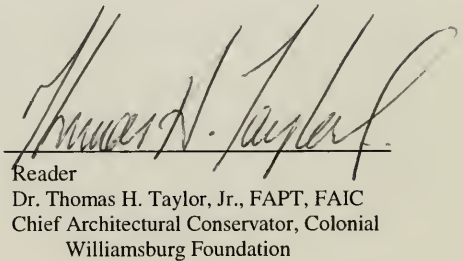 Thomas H. Taylor Jr.
Reader
Dr. Thomas H. Taylor, Jr., FAPT, FAIC
Chief Architectural Conservator, Colonial
Williamsburg Foundation